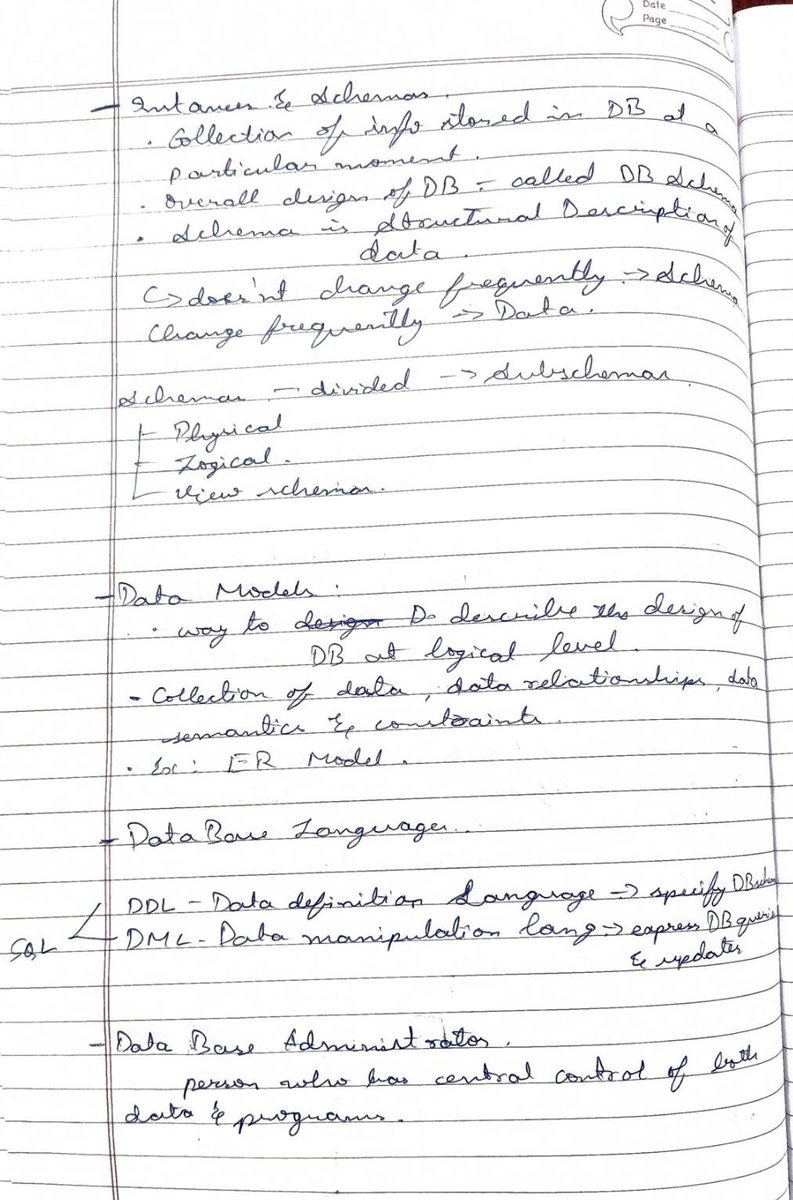 Date
Page
- Intances & Schemas.
. Collection of info stored in DB at a
particular moment.
. Overall design of DB - called DB Schema
. Schema is Structural Description of
data.
↳ does'nt change frequently → Schema
Change frequently → Data.
Schemas - divided → Subschemas.
Physical
Logical.
View schemas.
- Data Models:
. way to design D describe the design of
DB at logical level.
- Collection of data, data relationships, data
semantics & constraints.
. Ex: ER Model.
- DataBase Languages.
DDL - Data definition Language → specify DBschema
SQL
DML - Data manipulation lang → express DB queries
& updates
- Data Base Administrator.
person who has central control of both
data & programs.